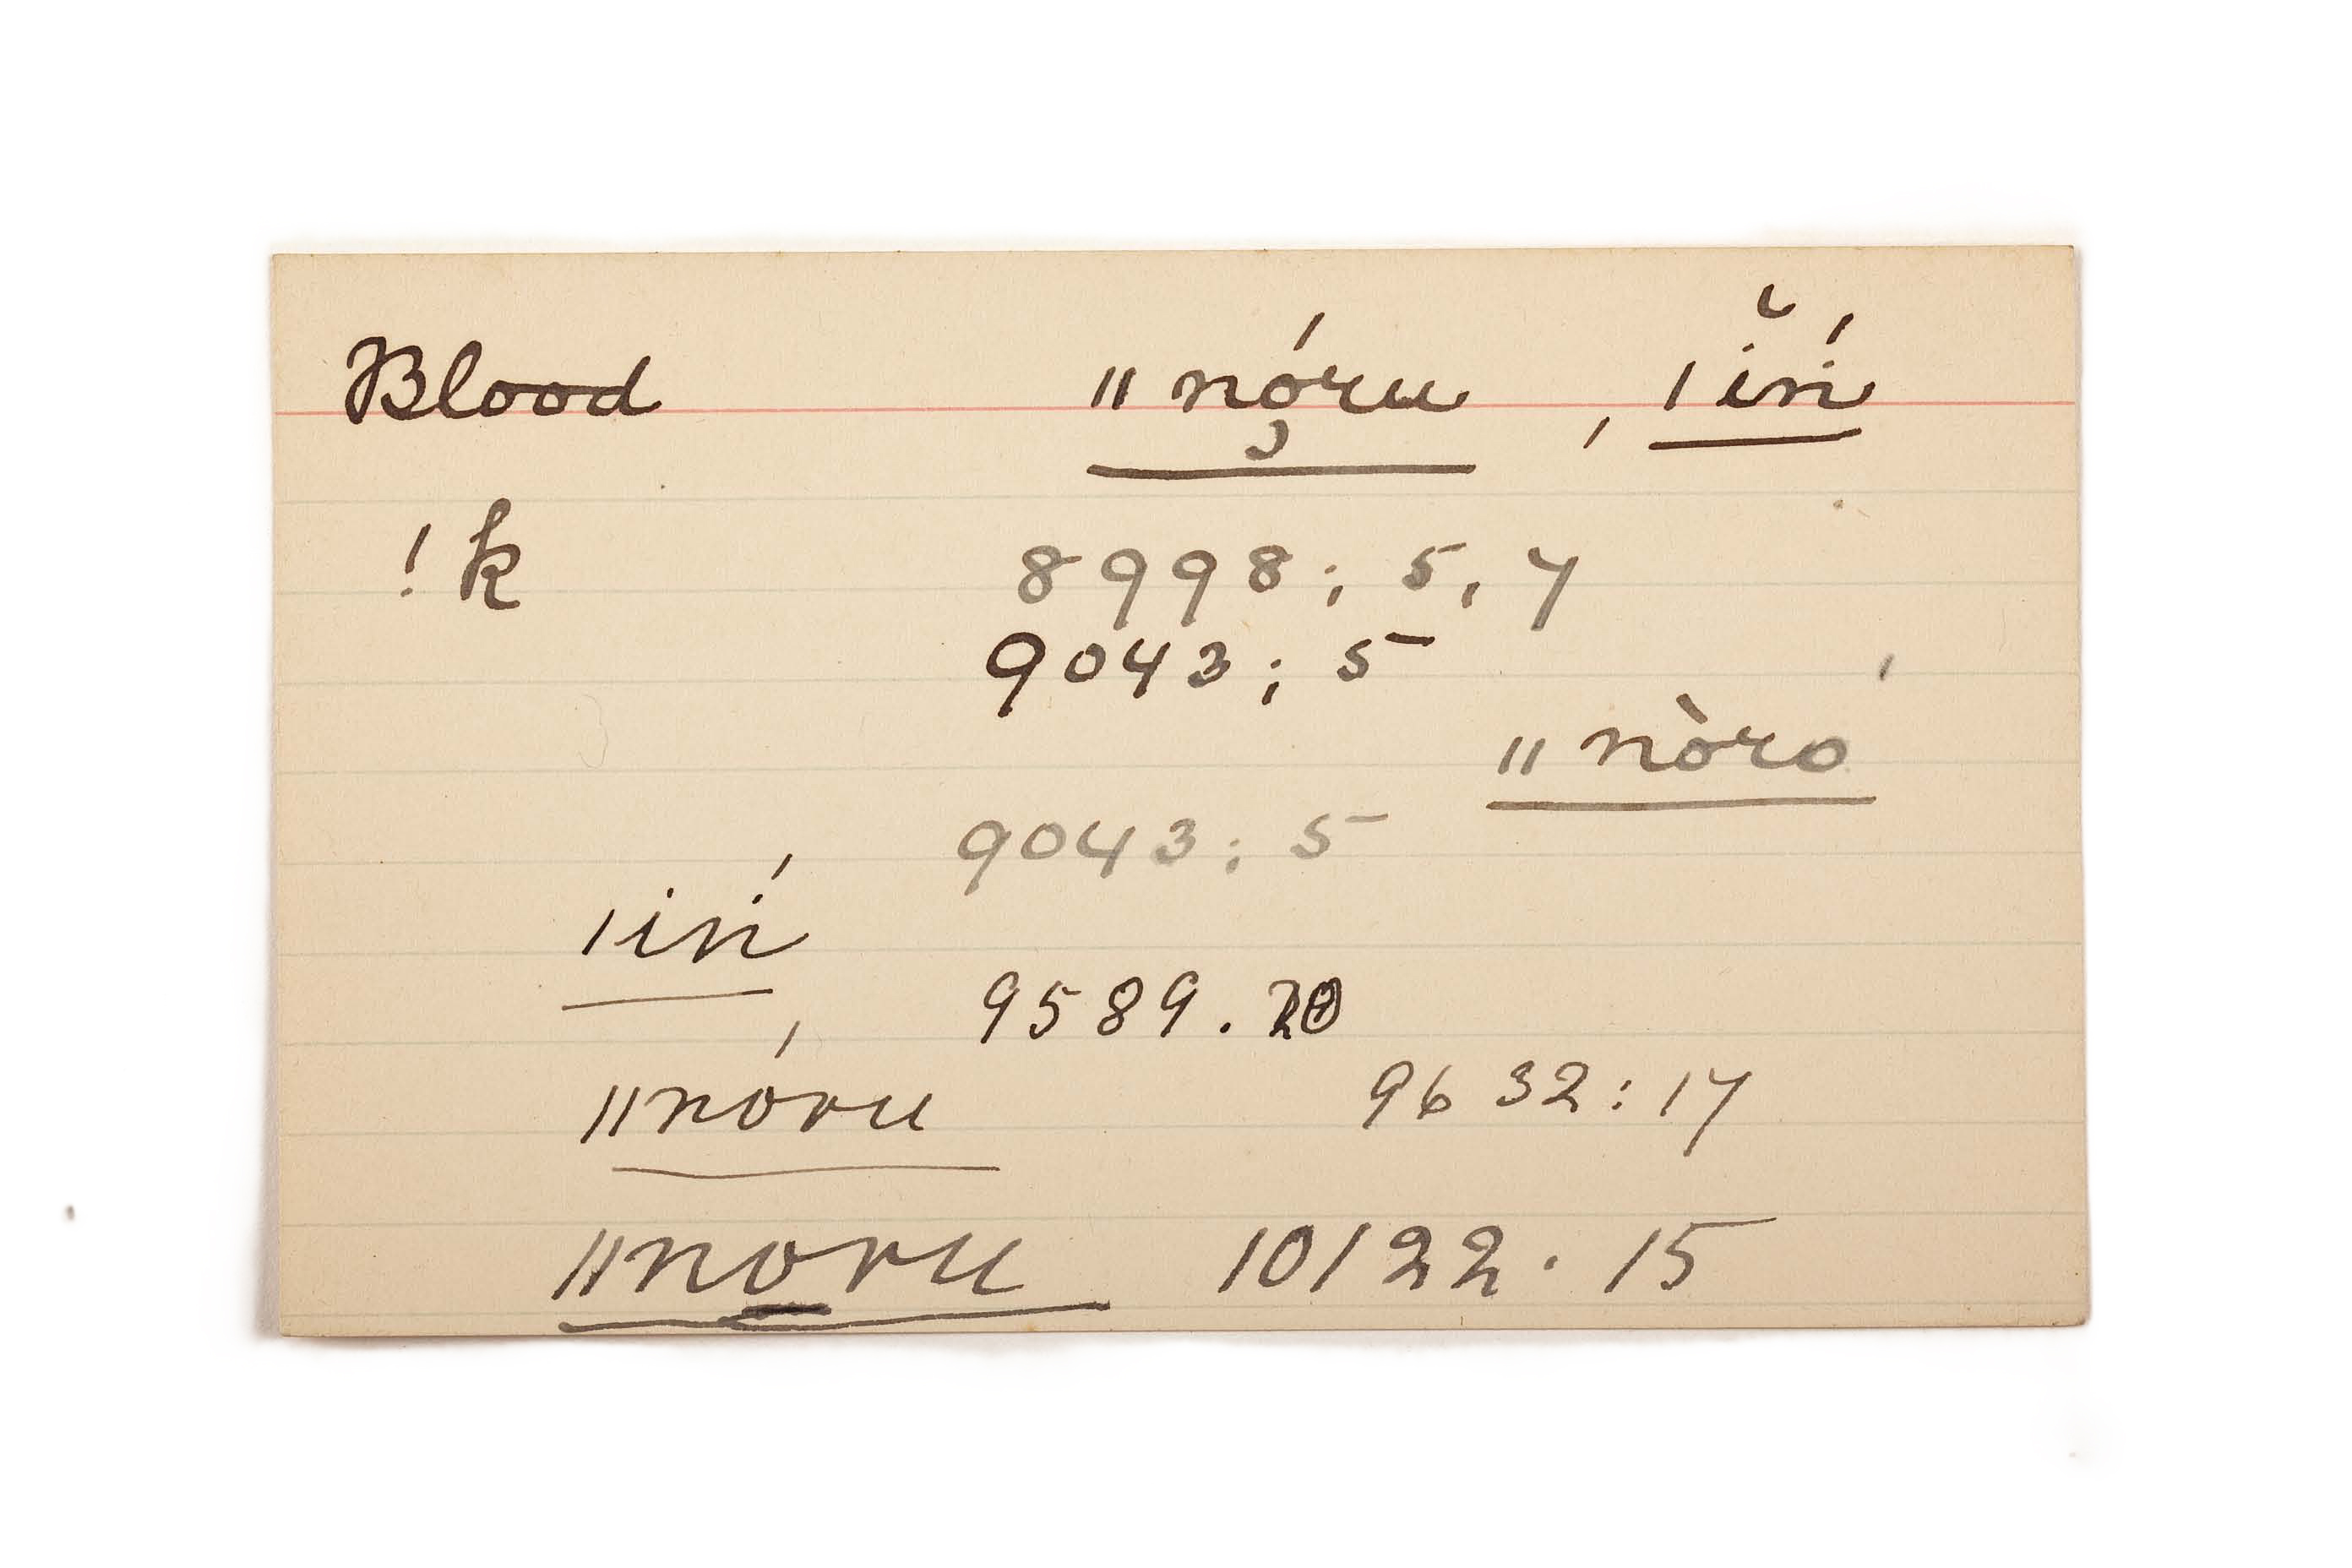 Blood ǁnó̜ru , ǀĭń
!k 8998; 5, 7
9043; 5
ǁnòró
9043; 5
ǀiń
9589. 20
ǁnóru 9632: 17
ǁno̱ru 10122. 15